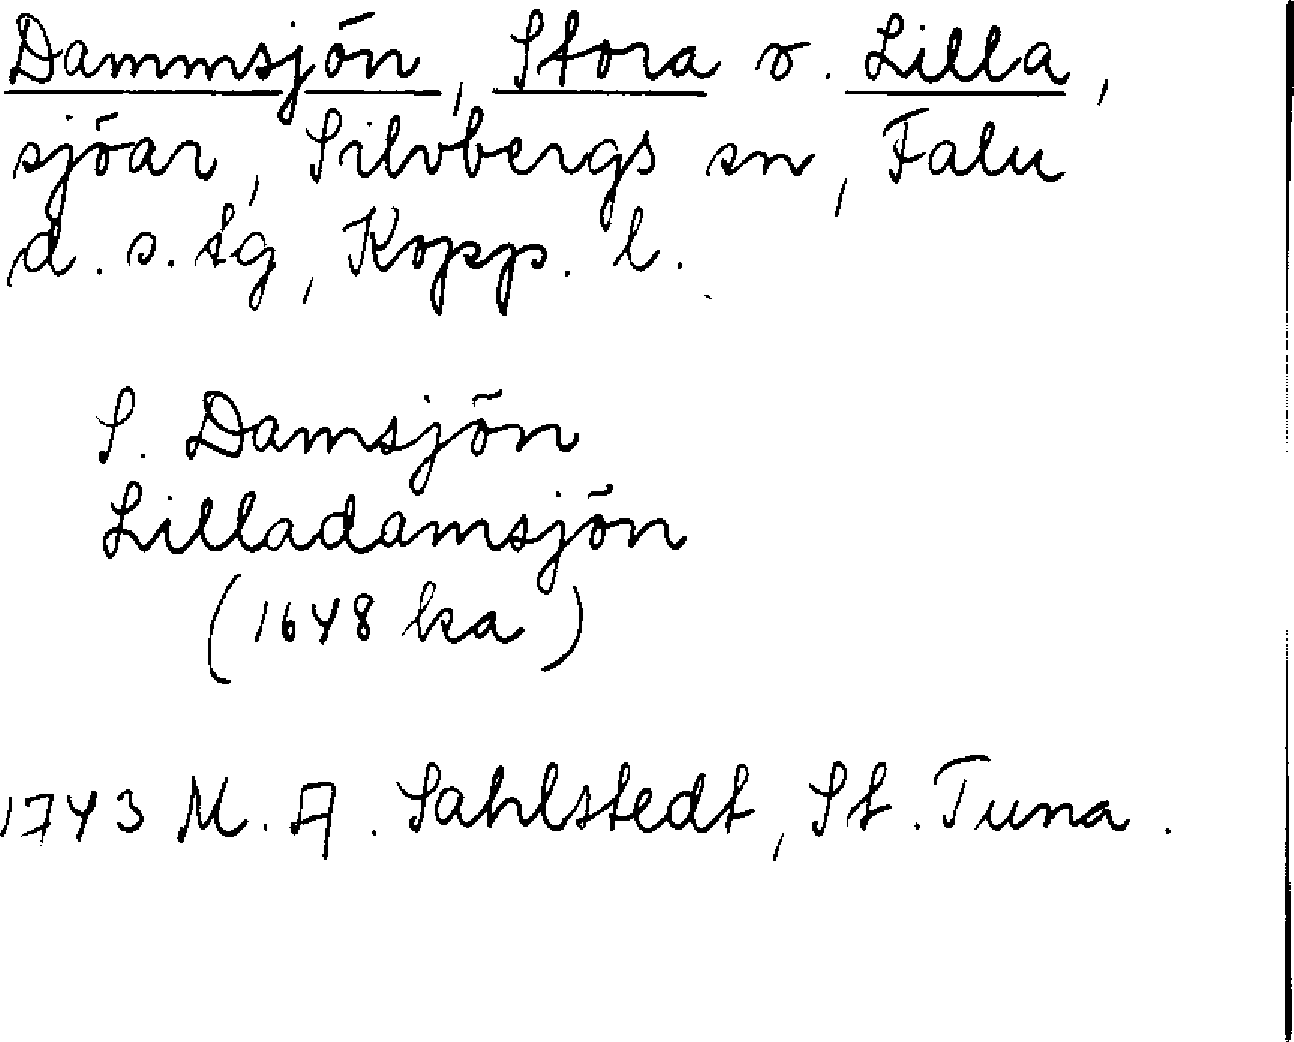 Dammsjön, Stora o. Lilla,
sjöar, Silvbergs sn, Falu
d. s. tg, Kopp. l.
S. Damsjön
Lilladamsjön
(1648 ka)
1743 M. A. Sahlstedt, St. Tuna.